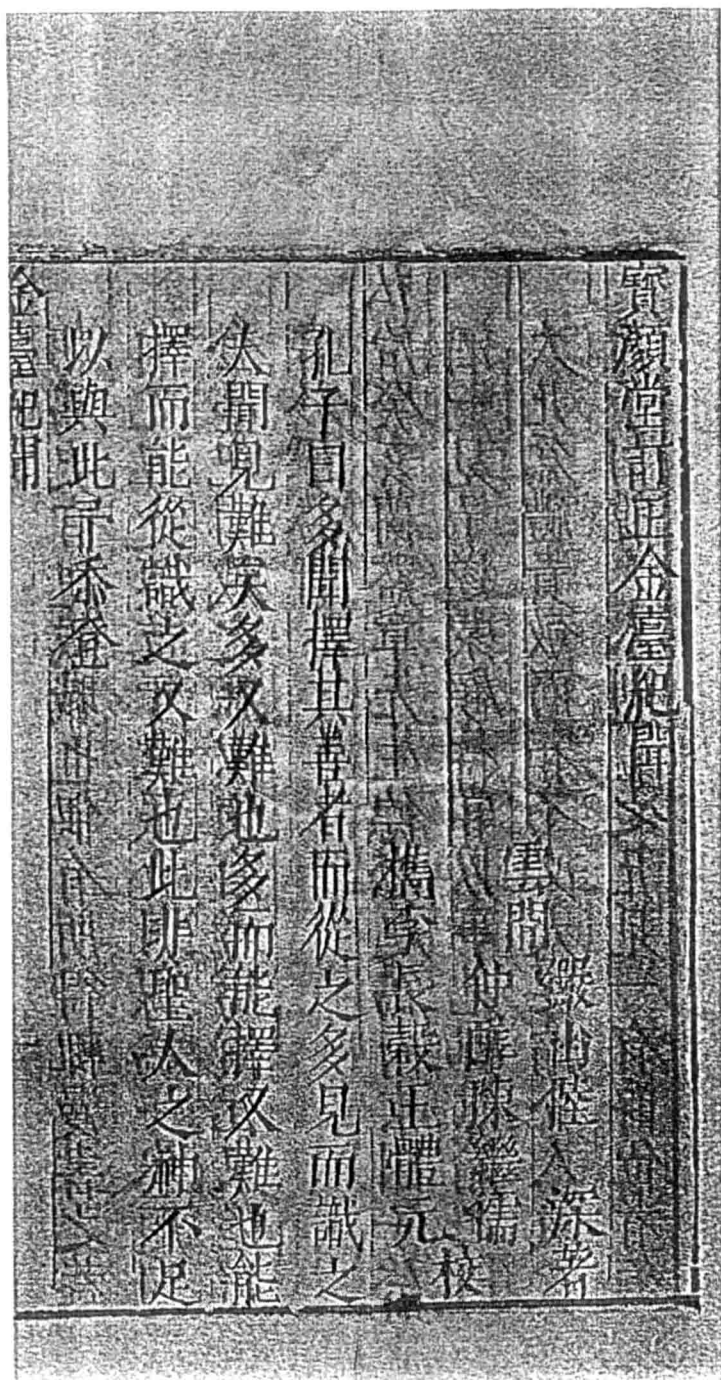 寶顏堂訂正金臺紀聞
雲間
儼山陸深著
仲醇陳繼儒
檇李張㦽王體元
校
孔子曰多聞擇其善者而從之多見而識之
夫聞見難矣多又難也多而能擇又難也能
擇而能從識之又難也此非聖人之神不足
以與此予
金臺紀聞